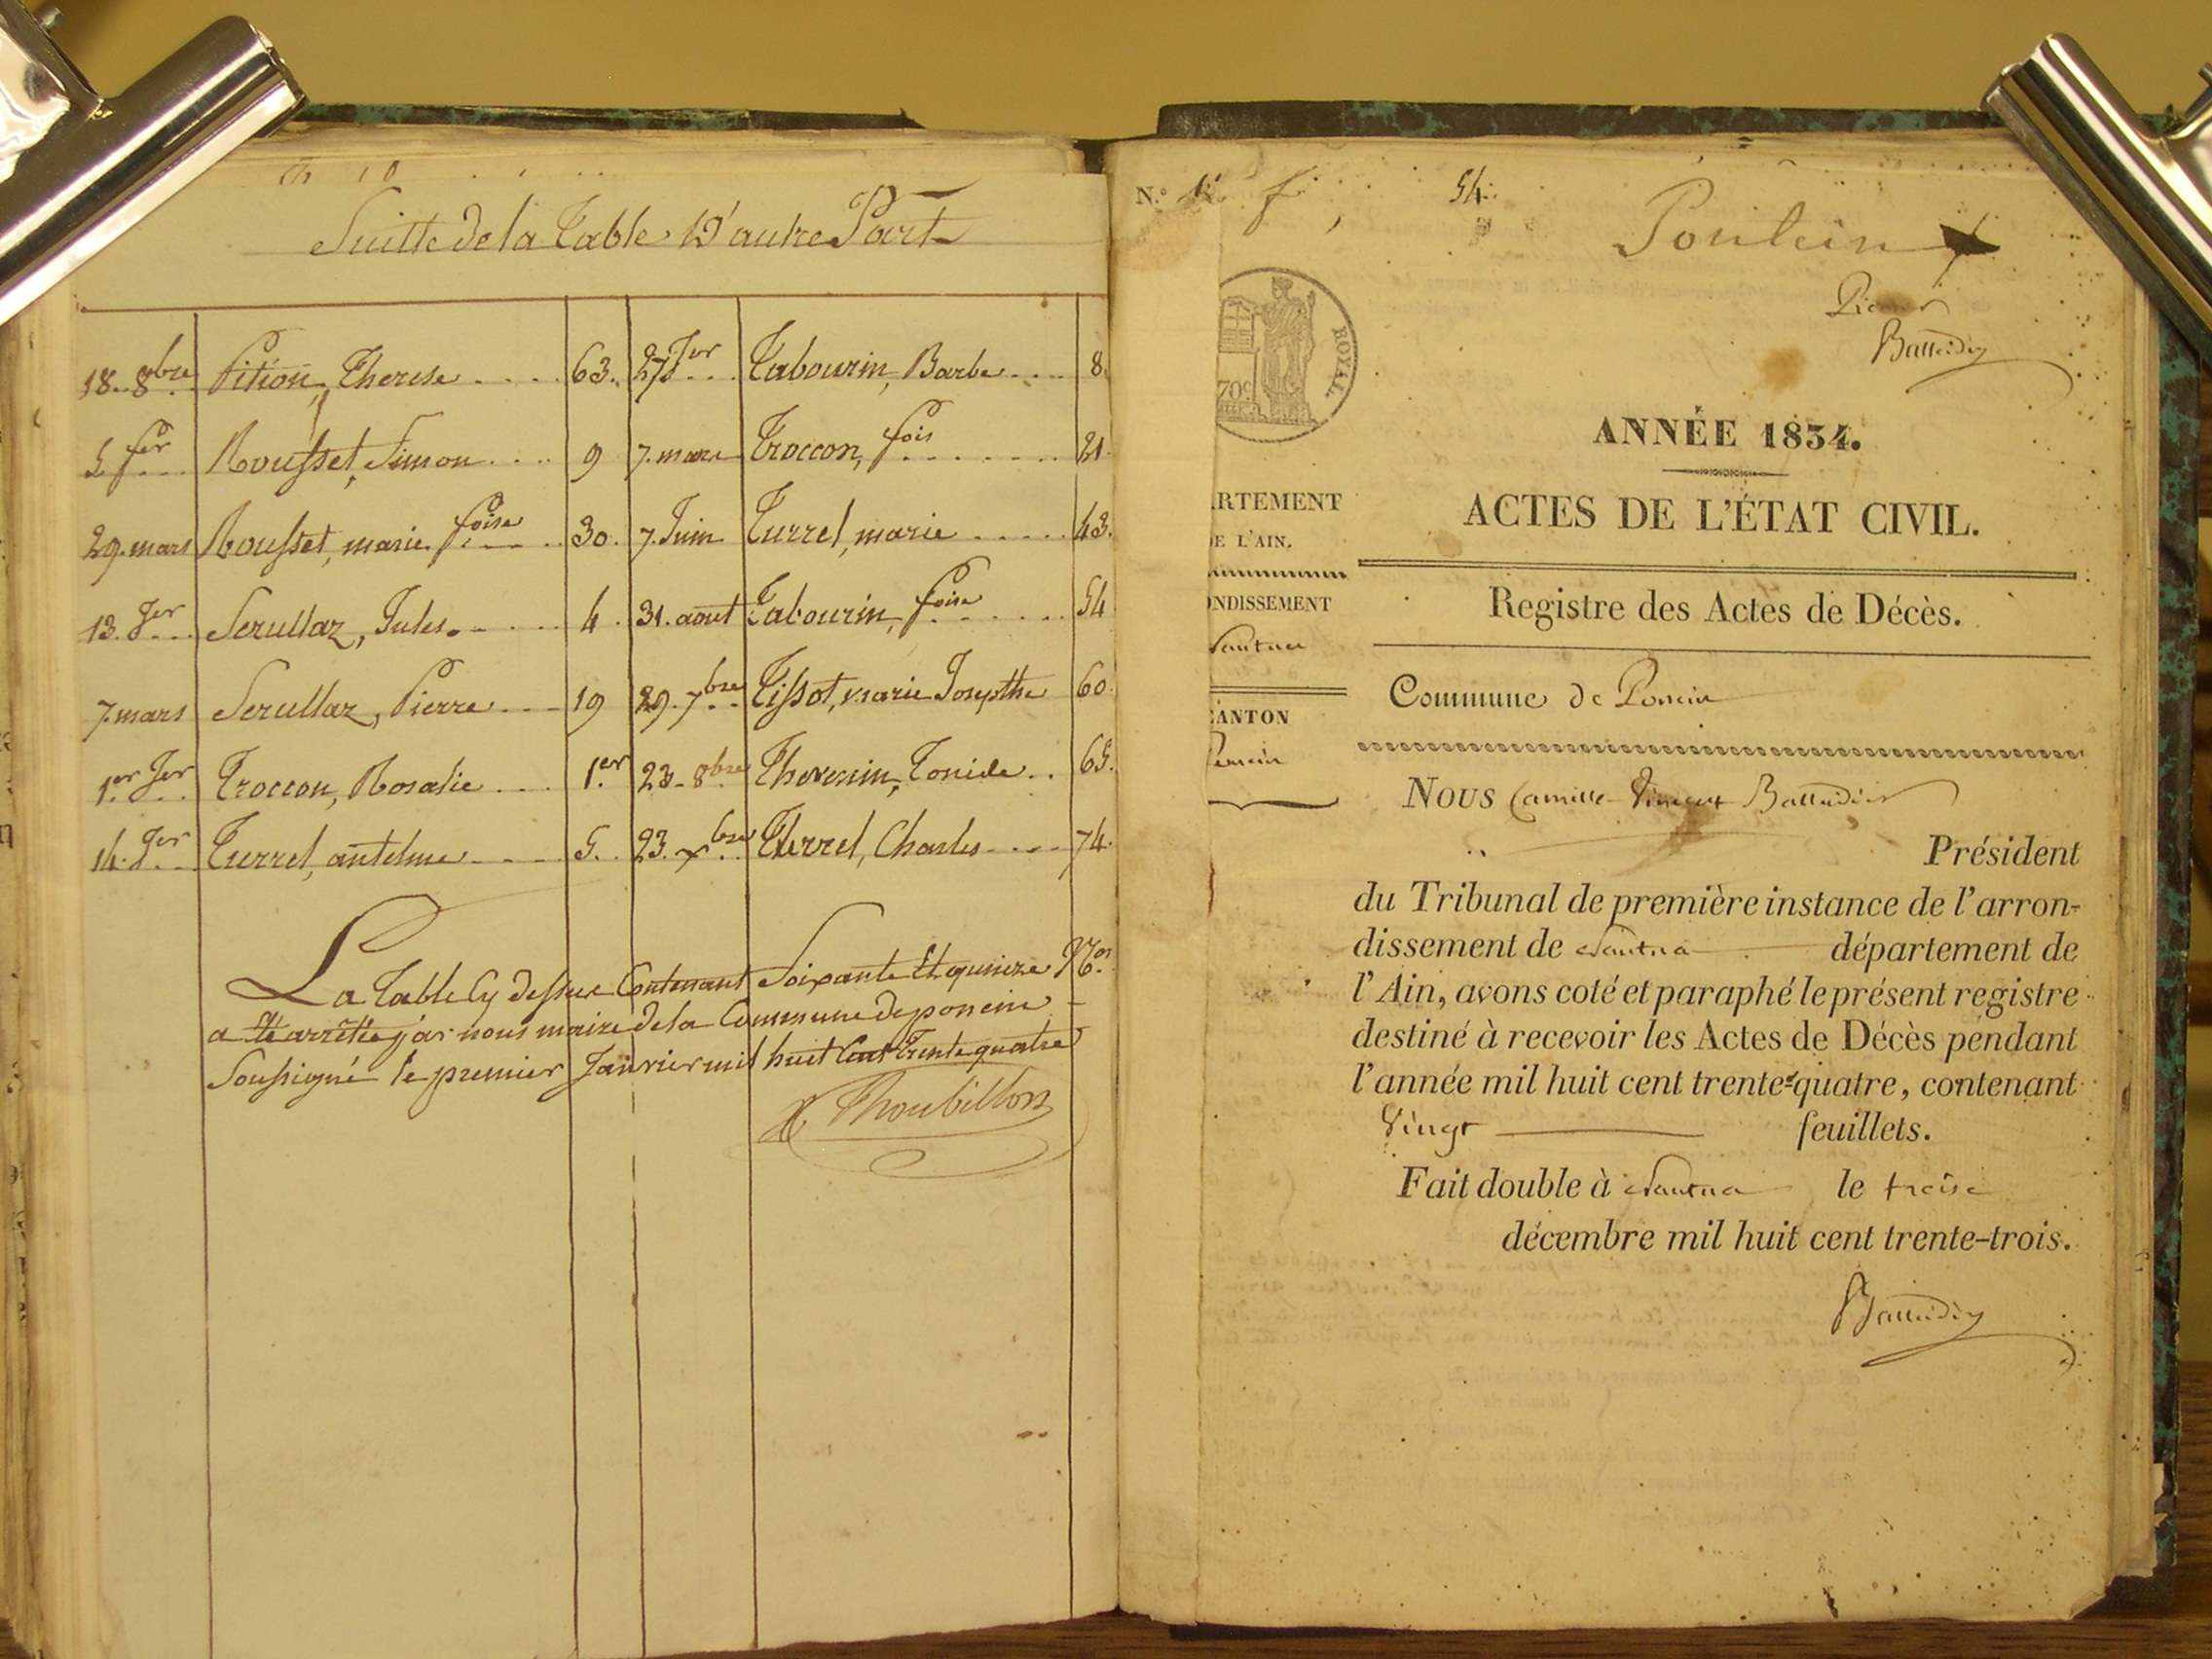 Suitte de la Table D'autre Part
18. 8bre Pition, Therese 63. 27 Jer Tabourin, Barbe 8.
5 fer Rousset, Simon 9 7. mars Troccon, fois 21.
29. mars Rousset, marie foise 30. 7. Juin Turrel, marie 43.
13. Jer Serullaz, Jules 4. 31. aout Tabourin, foise 54
7. mars Serullaz, Pierre 19 29. 7bre Tissot, marie Josepthe 60.
1er Jer Troccon, Rosalie 1er 23. 8bre Thevenin, 65.
14. Jer Turrel, antelme 5. 23. xbre Turrel, Charles 74.
La Table Cy dessus Contenant Soixante Et quinze Nos
a été arrêtée par nous maire de la Commune de poncin
Soussigné le premier Janvier mil huit Cent Trente quatre
Thoubillon
N.º 1er f 54
Poncin
Premier
Balleidier
ROYAL
70c.
ANNÉE 1834.
ACTES DE L'ÉTAT CIVIL.
RTEMENT
DE L'AIN.
Registre des Actes de Décès.
ONDISSEMENT
Nantua
Commune de Poncin
CANTON
Poncin
NOUS Camille Vincent Balleidier
Président
du Tribunal de première instance de l'arron-
dissement de Nantua département de
l'Ain, avons coté et paraphé le présent registre
destiné à recevoir les Actes de Décès pendant
l'année mil huit cent trente-quatre, contenant
Vingt feuillets.
Fait double à Nantua le treise
décembre mil huit cent trente-trois.
Balleidier